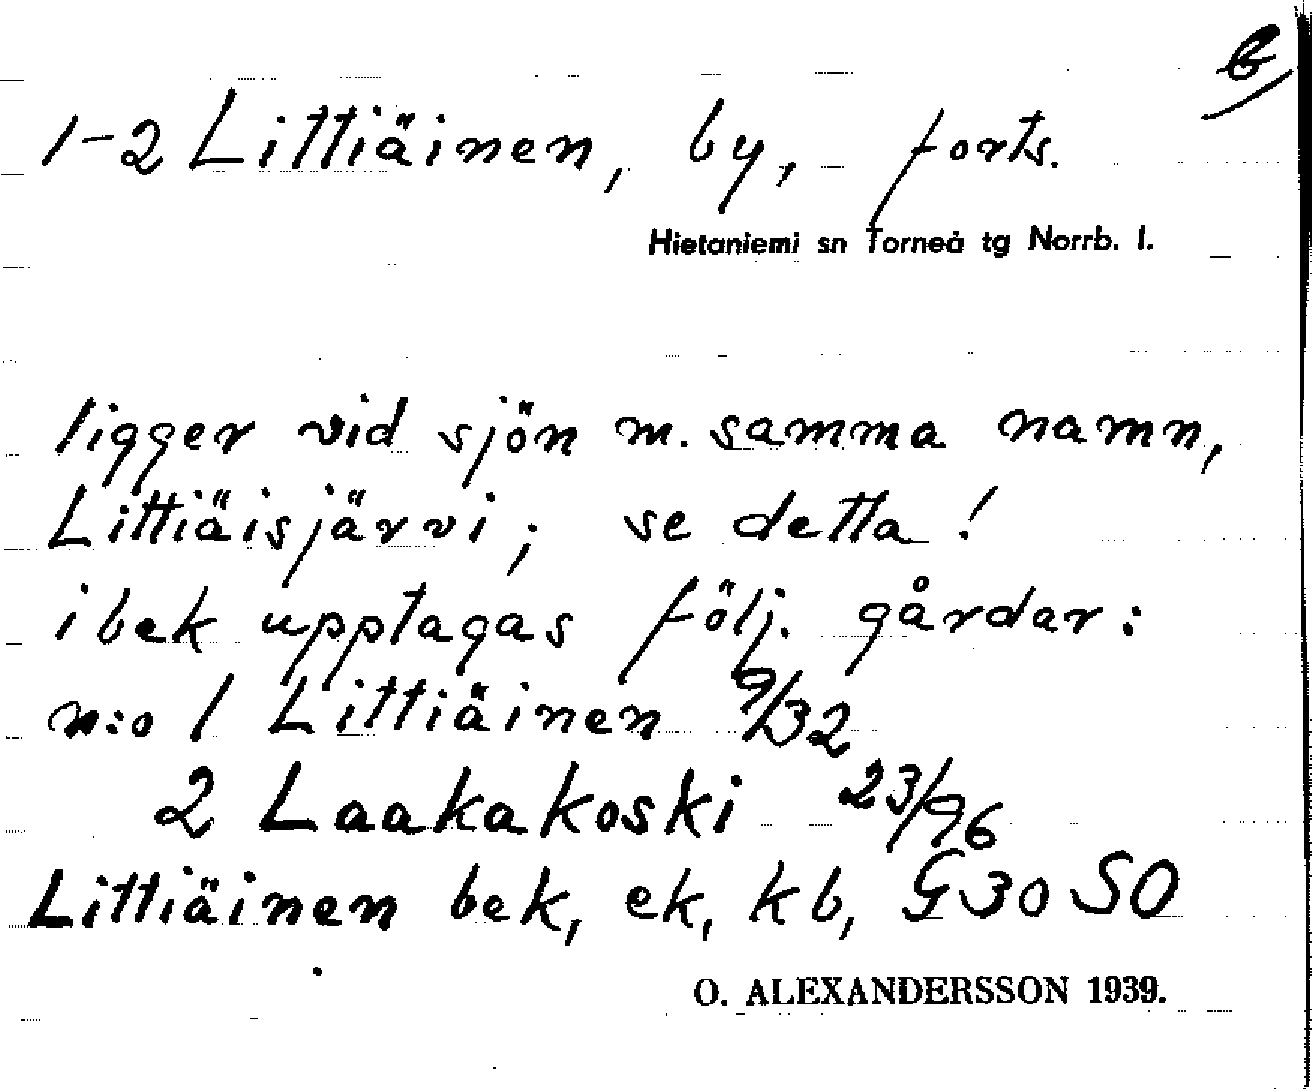 B
1-2 Littiäinen, by, forts.
Hietaniemi sn Torneå tg Norrb. l.
ligger vid sjön m. samma namn,
Littiäisjärvi; se detta!
i bek upptagas följ. gårdar:
n:o 1 Littiäinen 9/32
2 Laakakoski 23/96
Littiäinen bek, ek, kb, G 30 SO
O. ALEXANDERSSON 1939.